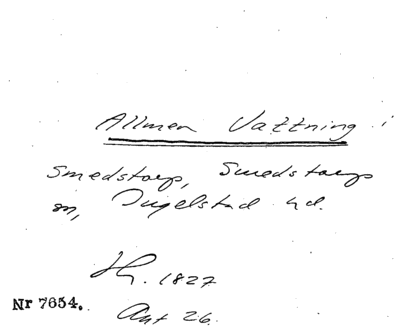 Allmen Vattning i
Smedstorp, Smedstorps
sn, Ingelstad hd.
1827
Nr 7654.
Ant 26.